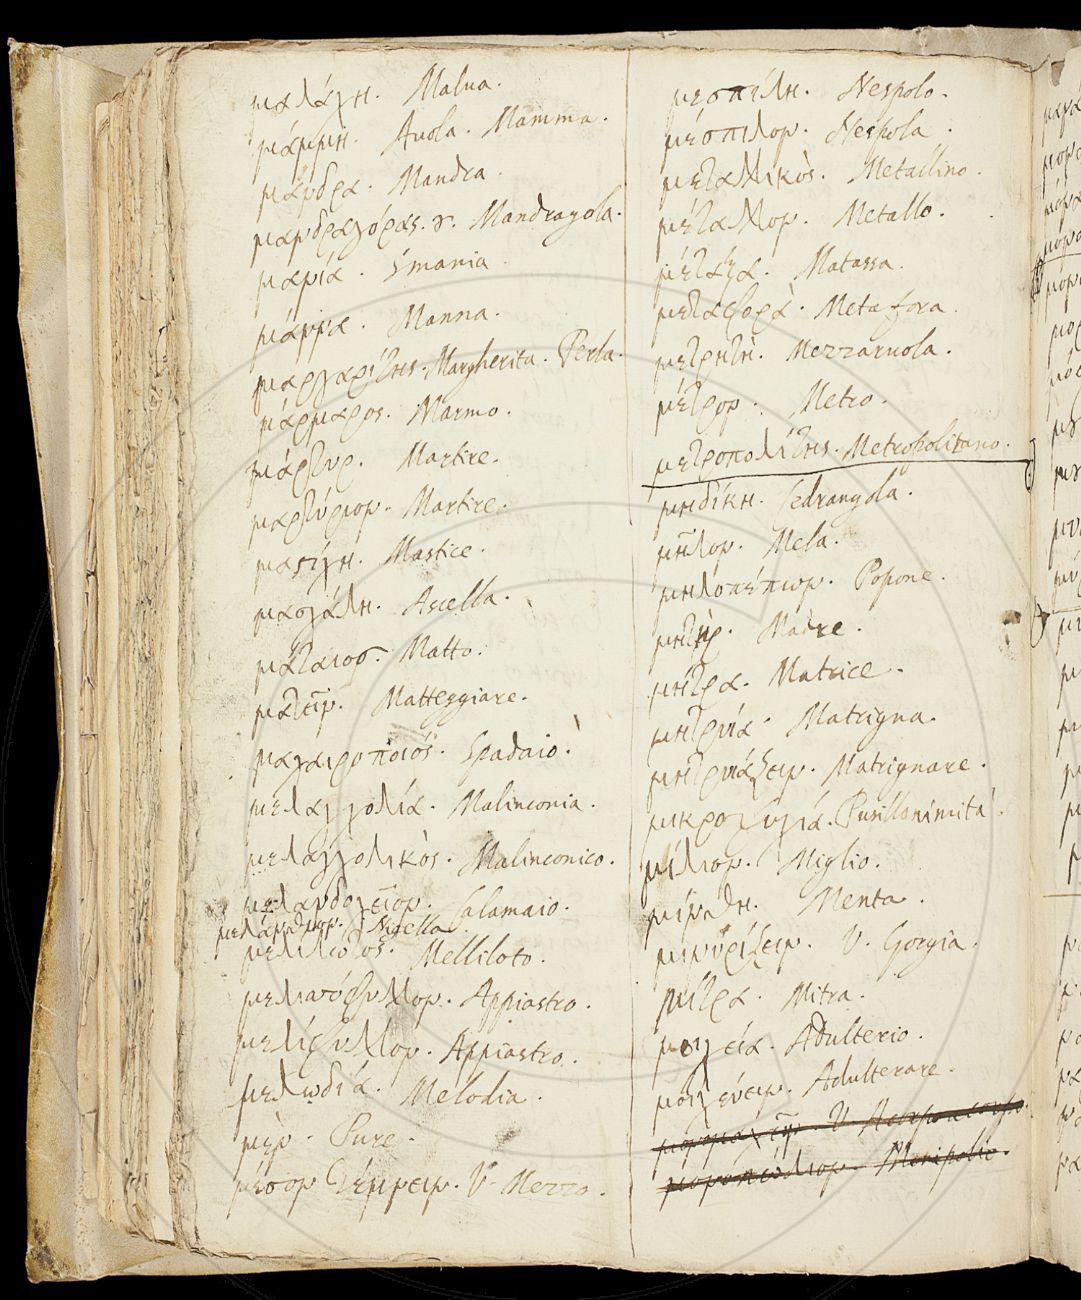 μαλάχη. Malua.
μάμμη. Auola. Mamma.
μάνδρα. Mandra.
μανδραγόρας. Mandragola.
μανία. Smania.
μάννα. Manna.
μαργαρίτης. Margherita. Perla.
μάρμαρος. Marmo.
μάρτυρ. Martire.
μαρτύριον. Martire.
μαστίχη. Mastice.
μασχάλη. Ascella.
μάταιος. Matto.
ματεῖν. Matteggiare.
μαχαιροποιός. Spadaio.
μελαγχολία. Malinconia.
μελαγχολικὸς. Malinconico.
μελανδοχεῖον. Calamaio.
μελάνθιον. Nigella.
μελίλωτος. Melliloto.
μελισσόφυλλον. Appiastro.
μελίφυλλον. Appiastro.
μελῳδία. Melodia.
μὲν. Pure.
μέσον τέμνειν. V. Mezzo.
μεσπίλη. Nespolo.
μέσπιλον. Nespola.
μεταλλικὸς. Metallino.
μέταλλον. Metallo.
μέταξα. Matassa.
μεταφορὰ. Metafora.
μετρητὴ. Mezzaruola.
μέτρον. Metro.
μετροπολίτης. Metropolitano.
μηδίκη. Cedrangola.
μῆλον. Mela.
μηλοπέπων. Popone.
μητὴρ. Madre.
μήτρα. Matrice.
μητρυιά. Matrigna.
μητρυιάζειν. Matrignare.
μικροψυχία. Pusillanimità.
μίλιον. Miglio.
μίνθη. Menta.
μινυρίζειν. V. Gorgia.
μίτρα. Mitra.
μοιχεία. Adulterio.
μοιχεύειν. Adulterare.
μονοπώλιον. Monipolio.